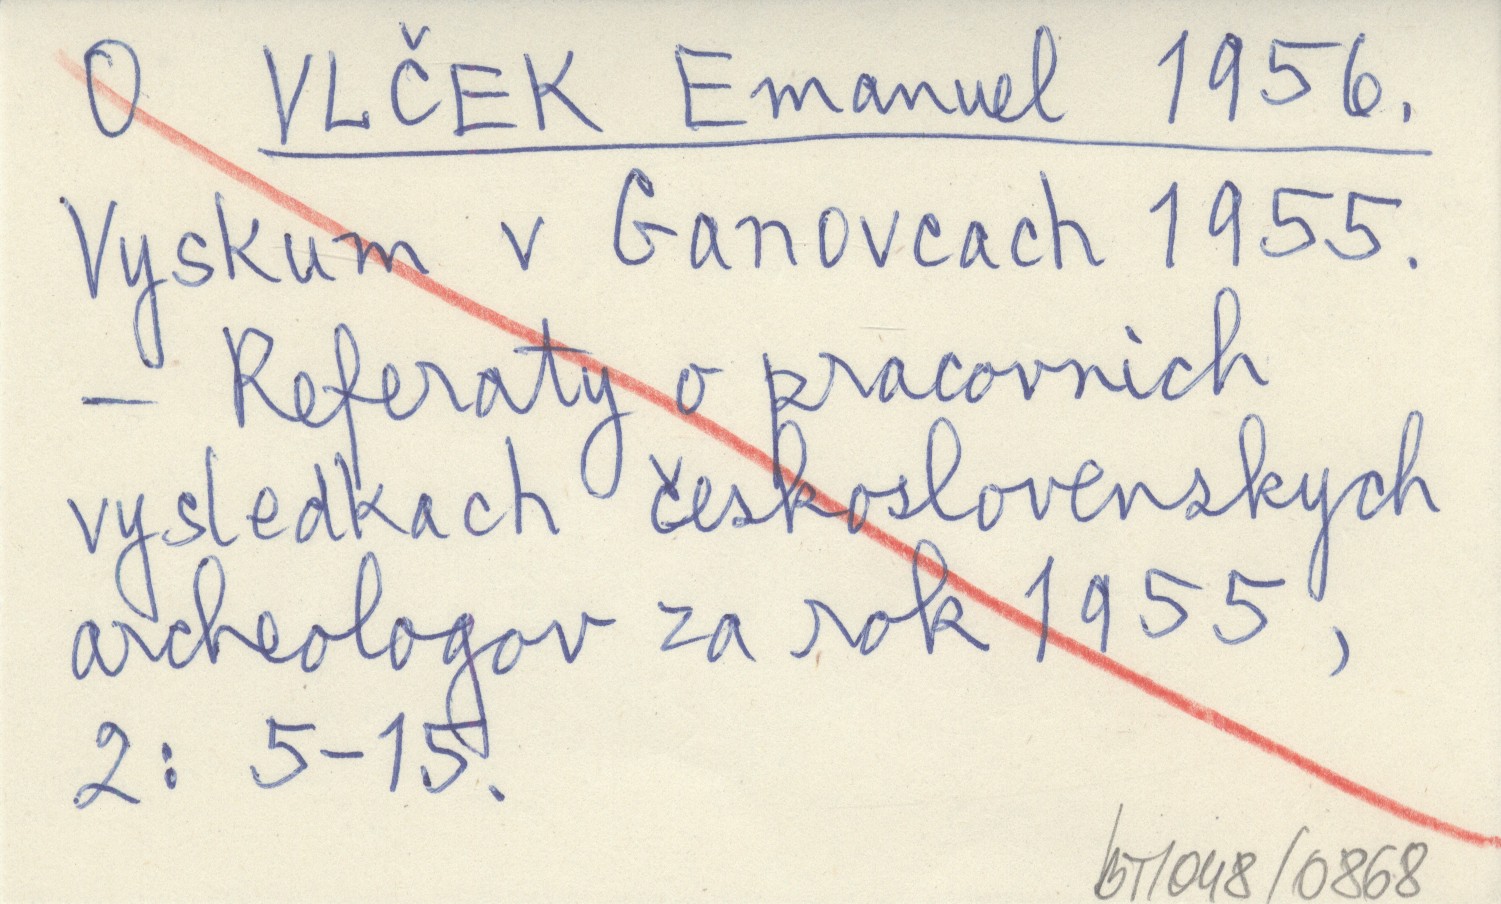 O VLČEK Emanuel 1956.
Vyskum v Ganovcach 1955.
– Referaty o pracovnich
vysledkach československych
archeologov za rok 1955,
2: 5-15.
BT/048/0868